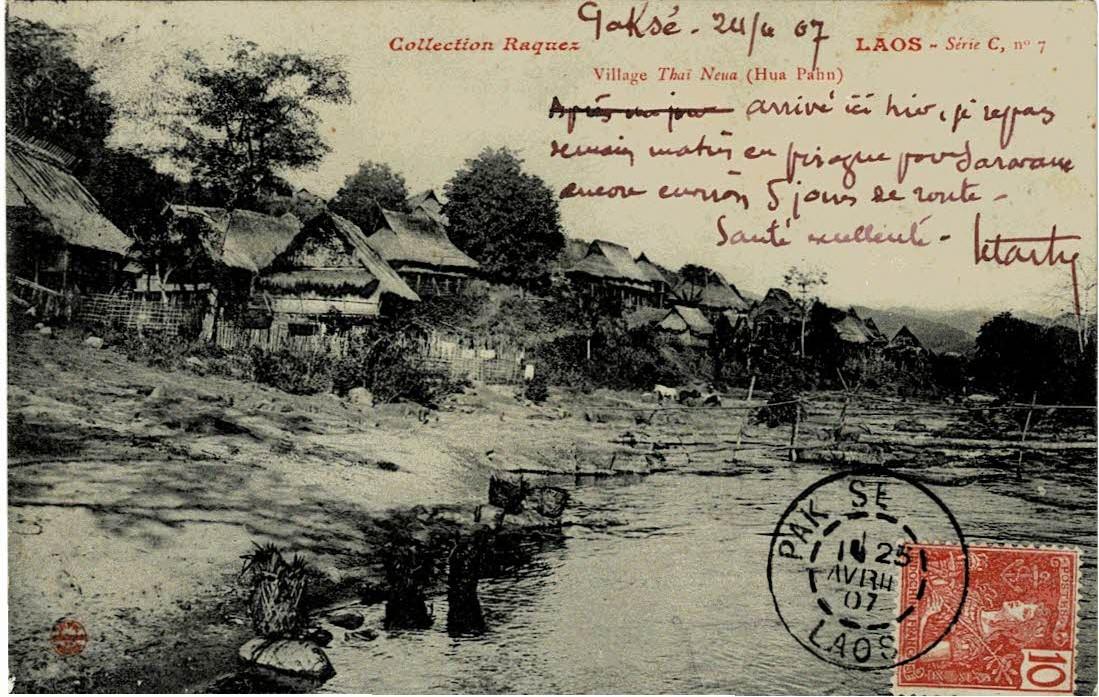 Paksé - 24/4 07
Collection Raquez
LAOS - Série C, nº 7
Village Thaï Neua (Hua Pahn)
Après un jour arrivé ici hier, je repars
demain matin en pirogue pour Saravane
encore environ 5 jours de route -
Santé excellente -
PAK SE
25
AVRIL
07
LAOS
10